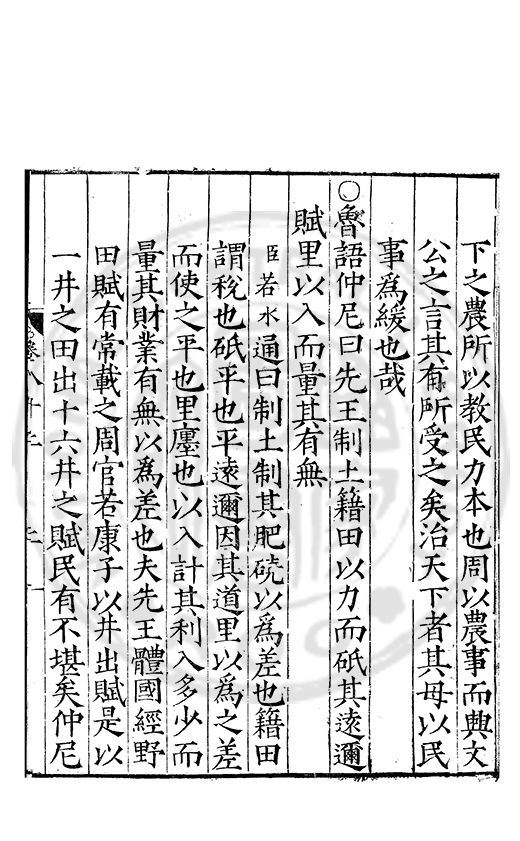 下之農所以教民力本也周以農事而興文
公之言其有所受之矣治天下者其毋以民
事為緩也哉
○魯語仲尼曰先王制土籍田以力而砥其遠邇
賦里以入而量其有無
臣若水通曰制土制其肥磽以為差也籍田
謂稅也砥平也平遠邇因其道里以為之差
而使之平也里廛也以入計其利入多少而
量其財業有無以為差也夫先王體國經野
田賦有常載之周官若康子以井出賦是以
一井之田出十六井之賦民有不堪矣仲尼